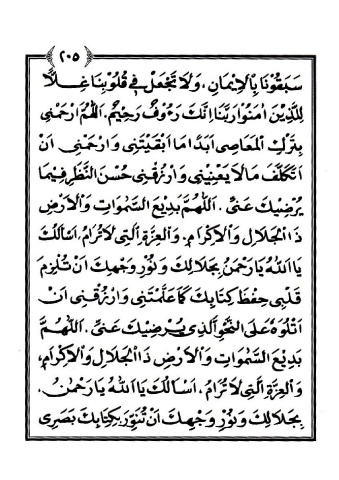 ﴿٢٠٥﴾
سَبَقُوْنَا بِالْاِيْمَانِ، وَلَا تَجْعَلْ فِيْ قُلُوْبِنَا غِلًّا
لِلَّذِيْنَ اٰمَنُوْا رَبَّنَا اِنَّكَ رَءُوْفٌ رَحِيْمٌ. اَللّٰهُمَّ ارْحَمْنِيْ
بِتَرْكِ الْمَعَاصِيْ اَبَدًا مَا اَبْقَيْتَنِيْ وَارْحَمْنِيْ اَنْ
اَتَكَلَّفَ مَا لَا يَعْنِيْنِيْ وَارْزُقْنِيْ حُسْنَ النَّظَرِ فِيْمَا
يُرْضِيْكَ عَنِّيْ. اَللّٰهُمَّ بَدِيْعَ السَّمٰوَاتِ وَالْاَرْضِ
ذَا الْجَلَالِ وَالْاِكْرَامِ. وَالْعِزَّةِ الَّتِيْ لَا تُرَامُ، اَسْاَلُكَ
يَا اَللّٰهُ يَا رَحْمٰنُ بِجَلَالِكَ وَنُوْرِ وَجْهِكَ اَنْ تُلْزِمَ
قَلْبِيْ حِفْظَ كِتَابِكَ كَمَا عَلَّمْتَنِيْ وَارْزُقْنِيْ اَنْ
اَتْلُوَهُ عَلَى النَّحْوِ الَّذِيْ يُرْضِيْكَ عَنِّيْ. اَللّٰهُمَّ
بَدِيْعَ السَّمٰوَاتِ وَالْاَرْضِ ذَا الْجَلَالِ وَالْاِكْرَامِ،
وَالْعِزَّةِ الَّتِيْ لَا تُرَامُ، اَسْاَلُكَ يَا اَللّٰهُ يَا رَحْمٰنُ،
بِجَلَالِكَ وَنُوْرِ وَجْهِكَ اَنْ تُنَوِّرَ بِكِتَابِكَ بَصَرِيْ